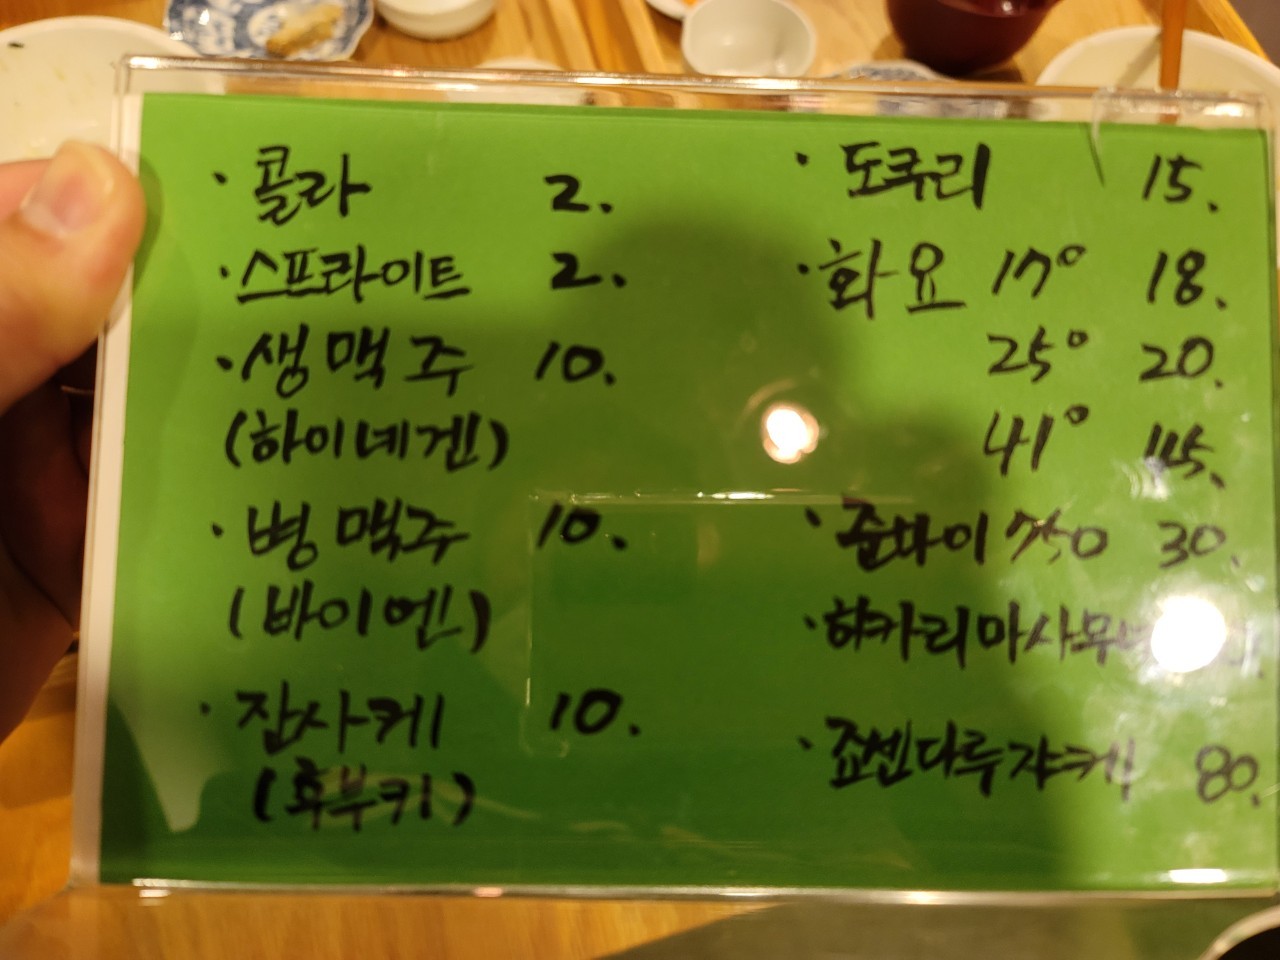 · 콜라 2.
· 스프라이트 2.
· 생맥주 10.
(하이네겐)
· 병맥주 10.
(바이엔)
· 잔사케 10.
(후부키)
· 도쿠리 15.
· 화요 17° 18.
25° 20.
41° 45.
· 준마이 750 30.
· 히카리마사무
· 죠센다루쟈케 80.